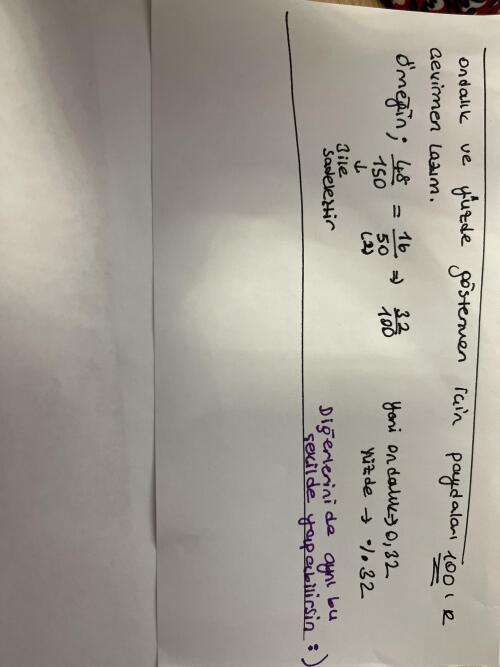 ondalık ve yüzde göstermen için paydaları 100'e
çevirmen lazım.
Örneğin; 48/150 = 16/50 ⇒ 32/100 yani ondalık→0,32
↓ (2) yüzde → %32
3 ile
sadeleştir
Diğerlerini de aynı bu
şekilde yapabilirsin :)